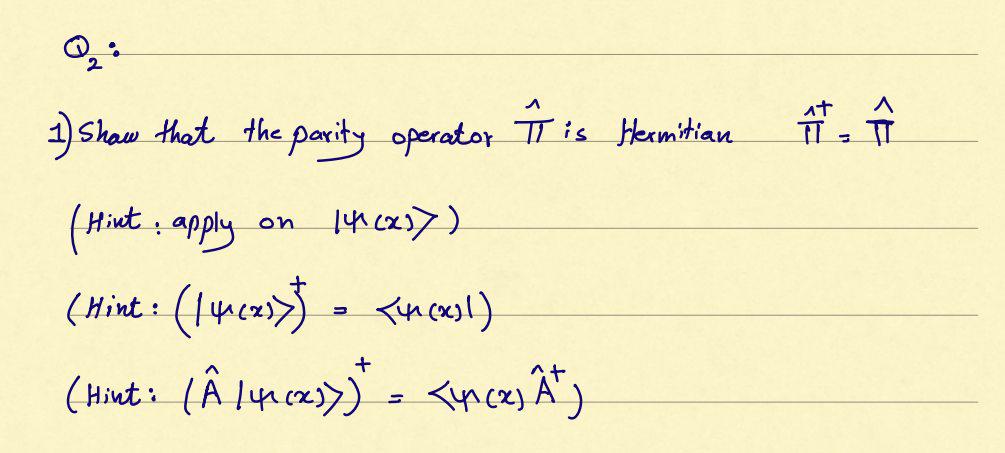 Q₂:
1) Show that the parity operator Π̂ is Hermitian Π̂† = Π̂
(Hint: apply on |ψ(x)⟩)
(Hint: (|ψ(x)⟩)† = ⟨ψ(x)|)
(Hint: (Â |ψ(x)⟩)† = ⟨ψ(x) Â†)